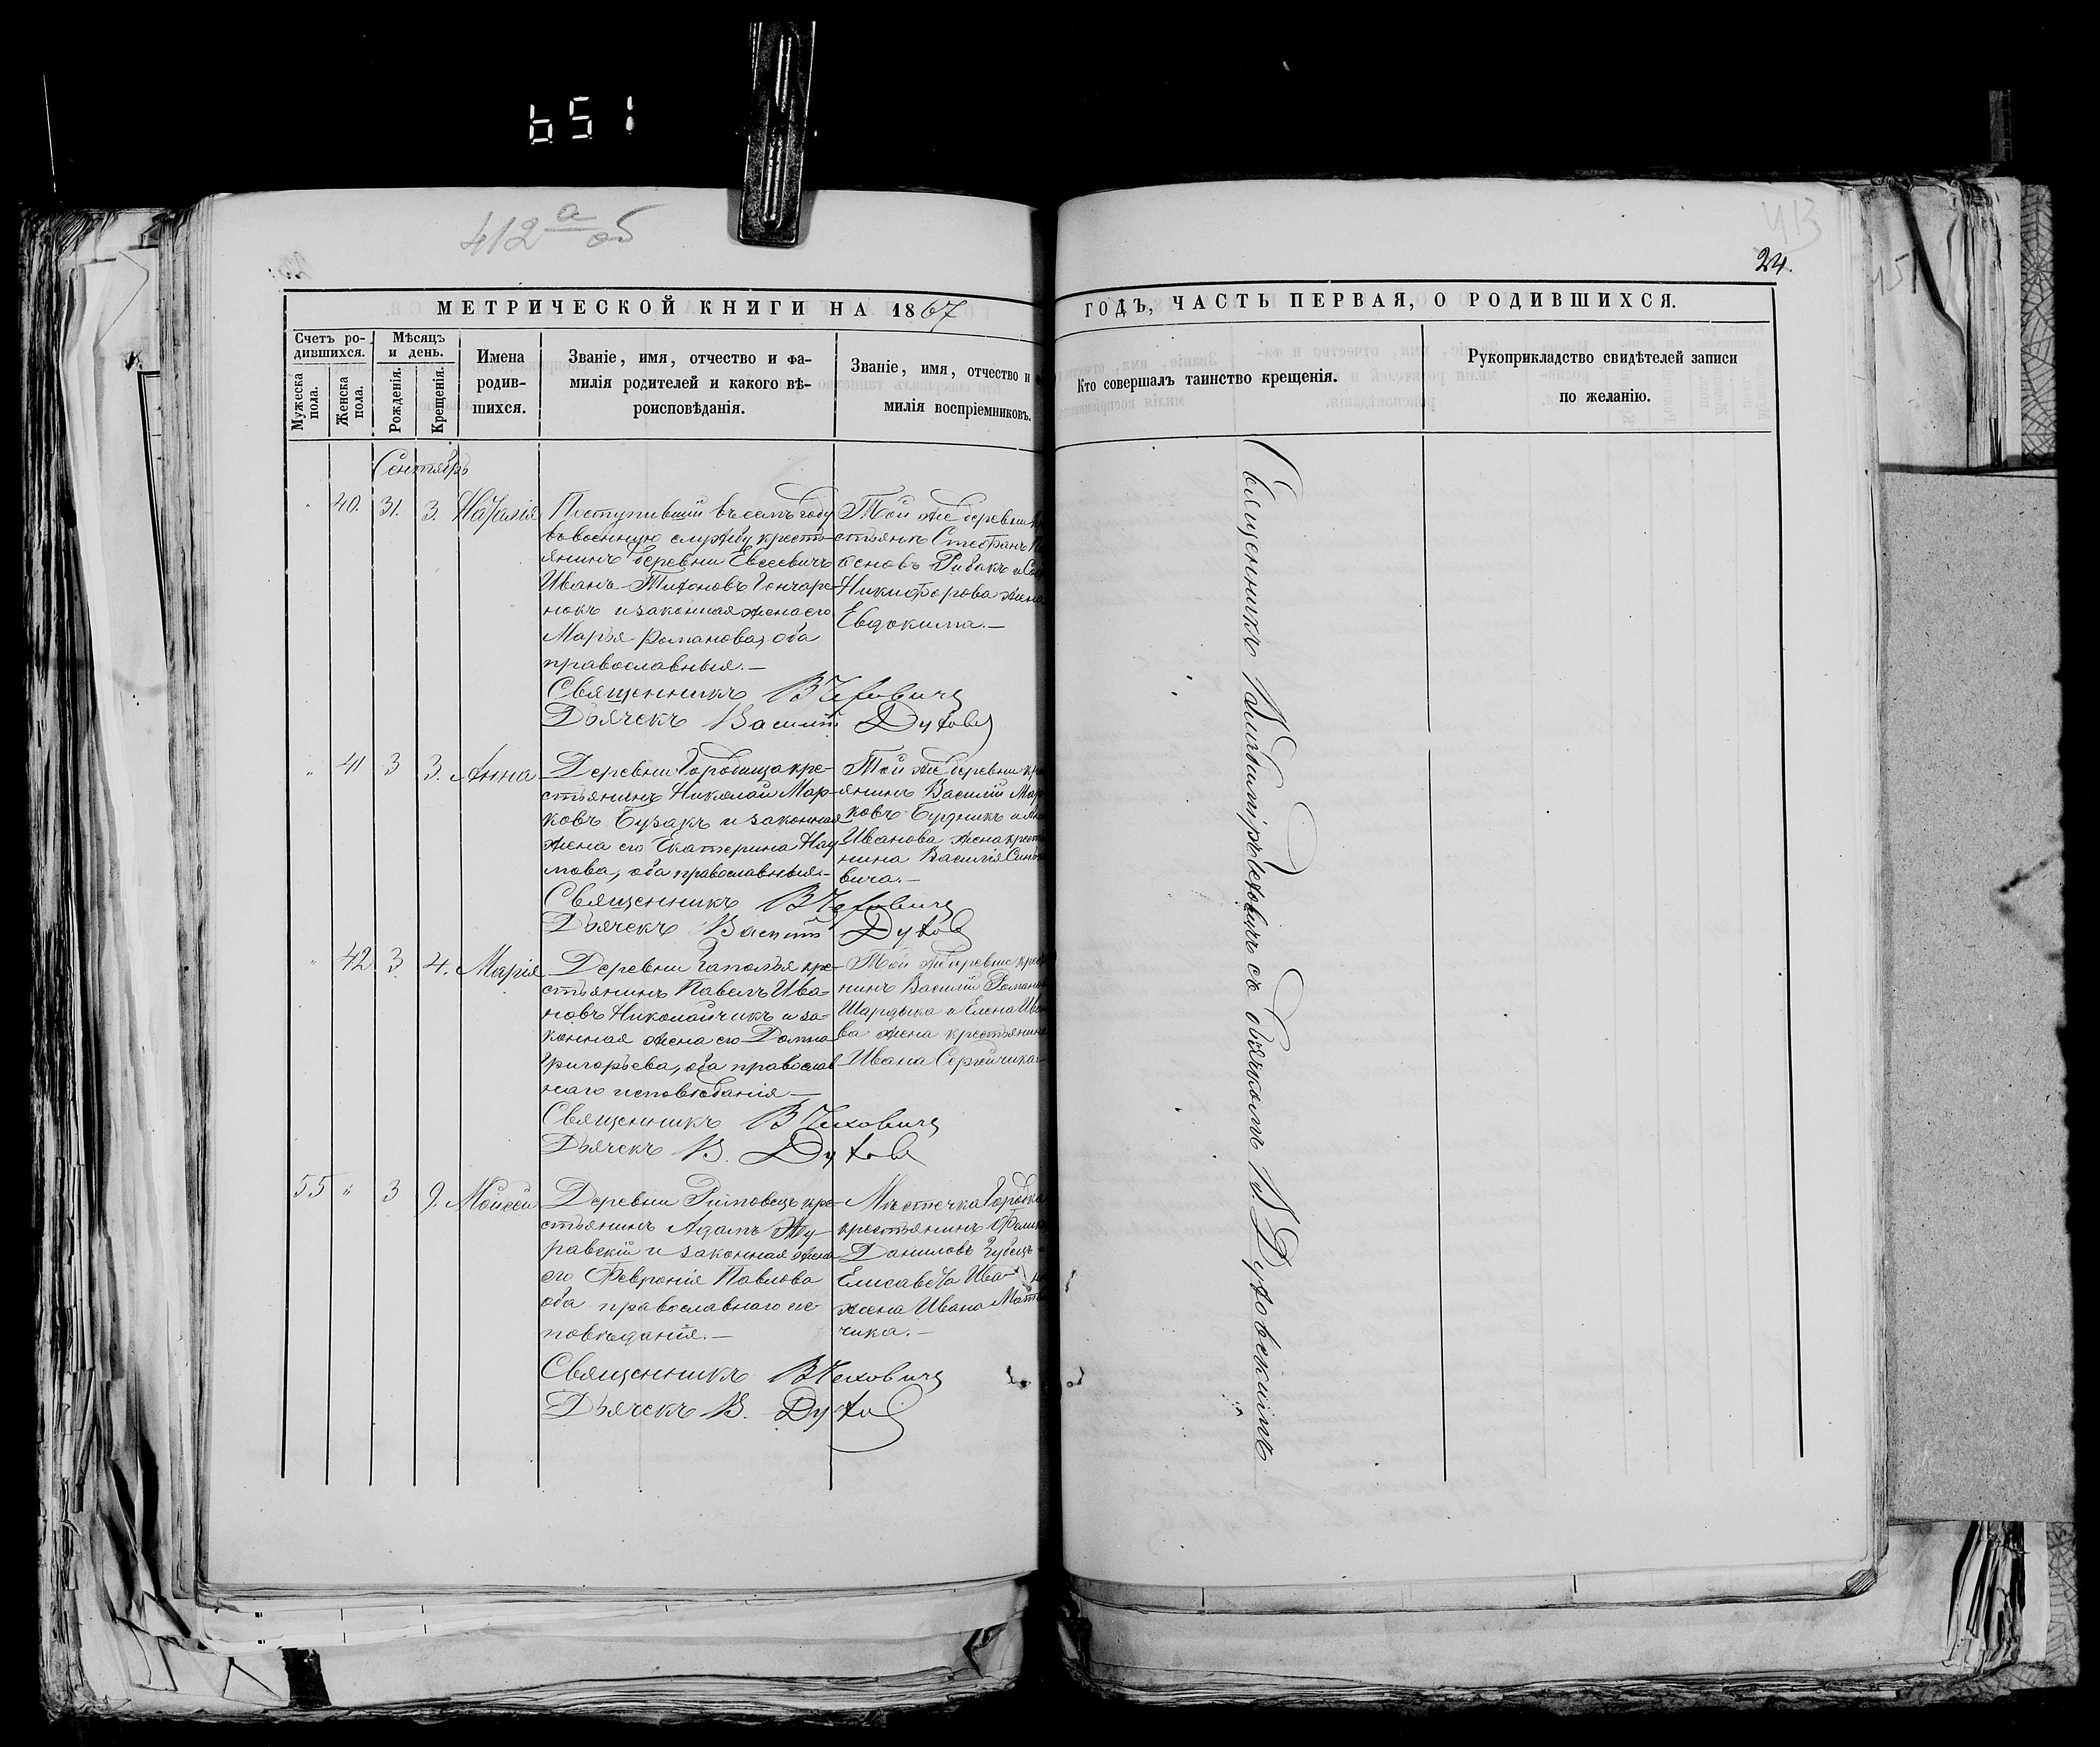 651
412 а об
413
24.
МЕТРИЧЕСКОЙ КНИГИ НА 1867
ГОДЪ, ЧАСТЬ ПЕРВАЯ, О РОДИВШИХСЯ.
Счетъ ро-
дившихся.
Мужеска пола.
Женска пола.
Мѣсяцъ
и день.
Рожденія.
Крещенія.
Имена
родив-
шихся.
Званіе, имя, отчество и фа-
милія родителей и какого вѣ-
роисповѣданія.
Званіе, имя, отчество и
милія воспріемниковъ.
Кто совершалъ таинство крещенія.
Рукоприкладство свидѣтелей записи
по желанію.
Сентябрь
40. 31. 3. Наталія
Поступивший въ семъ году
въ военную службу кресть-
янинъ деревни Евсевичъ
Иванъ Тихоновъ Гончаре-
нокъ и законная жена его
Марья Романова, оба
православныя.—
Священникъ В Чеховичъ
Дьячекъ Василий Духовс
Той же деревни
стьянъ Стефанъ
основъ Рибакъ и
Никифорова жена
Евдокима.—
41 3 3. Анна
Деревни Городища кре-
стьянинъ Николай Мар-
ковъ Бузакъ и законная
жена его Екатерина Нау-
мова, оба православныя.—
Священникъ В Чеховичъ
Дьячекъ Василий Духовс
Той же деревни
янинъ Василій
ковъ Будникъ
Иванова жена
нина Василія
вича.—
42 3. 4. Марія
Деревни Гаполья кре-
стьянинъ Павелъ Ива-
новъ Николайчикъ и за-
конная жена его Домна
Григорьева, оба православ-
наго исповѣданія—
Священникъ В Чеховичъ
Дьячекъ В. Духовс
Той же деревни
нинъ Василій
Шардыка и Елена
ва жена крестьянина
Ивана Сергѣйчика
55 " 3 9. Моисей
Деревни Ритовецъ кре-
стьянинъ Адамъ Жу-
равскій и законная жена
его Февронія Павлова
оба православнаго ис-
повѣданія.—
Священникъ В Чеховичъ
Дьячекъ В. Духовс
Мѣстечка Городка
крестьянинъ
Даниловъ Чубецъ
Елисавета
жена Ивана
чика.—
Священникъ Владиміръ Чеховичъ съ дьячкомъ В. Духовскимъ